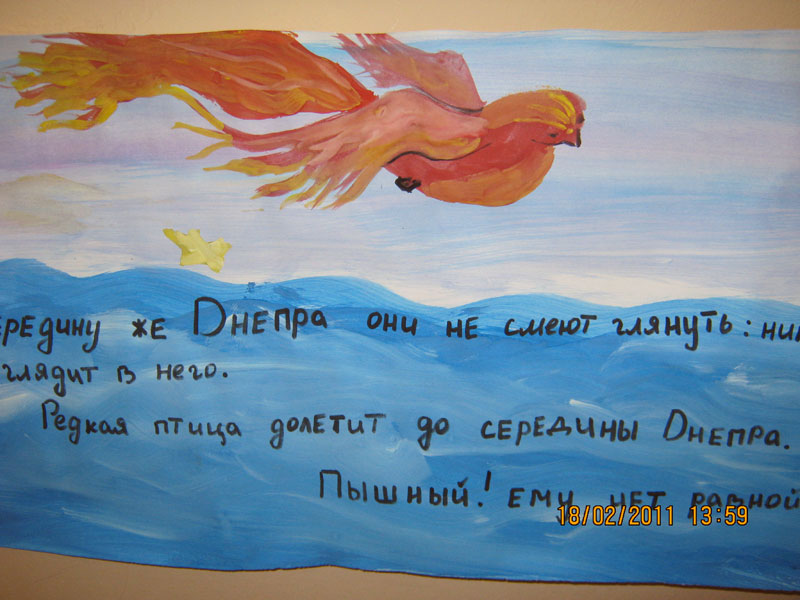 ередину же Днепра они не смеют глянуть: ник
глядит в него.
Редкая птица долетит до середины Днепра.
Пышный! ему нет равной
18/02/2011 13:59